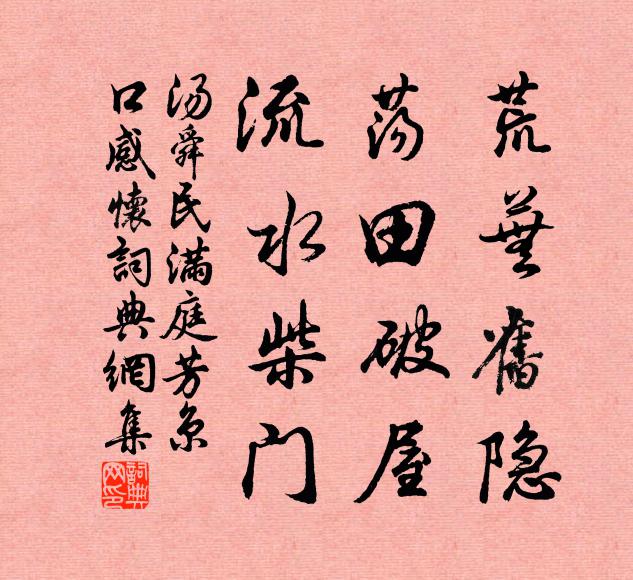 荒蕪舊隐
荡田破屋
流水柴门
汤舜民满庭芳京
口感懷詞典網集
詞典网印